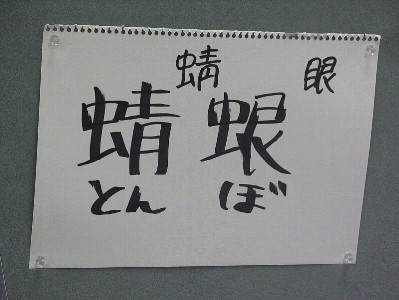 蜻 眼
蜻蛝
とんぼ